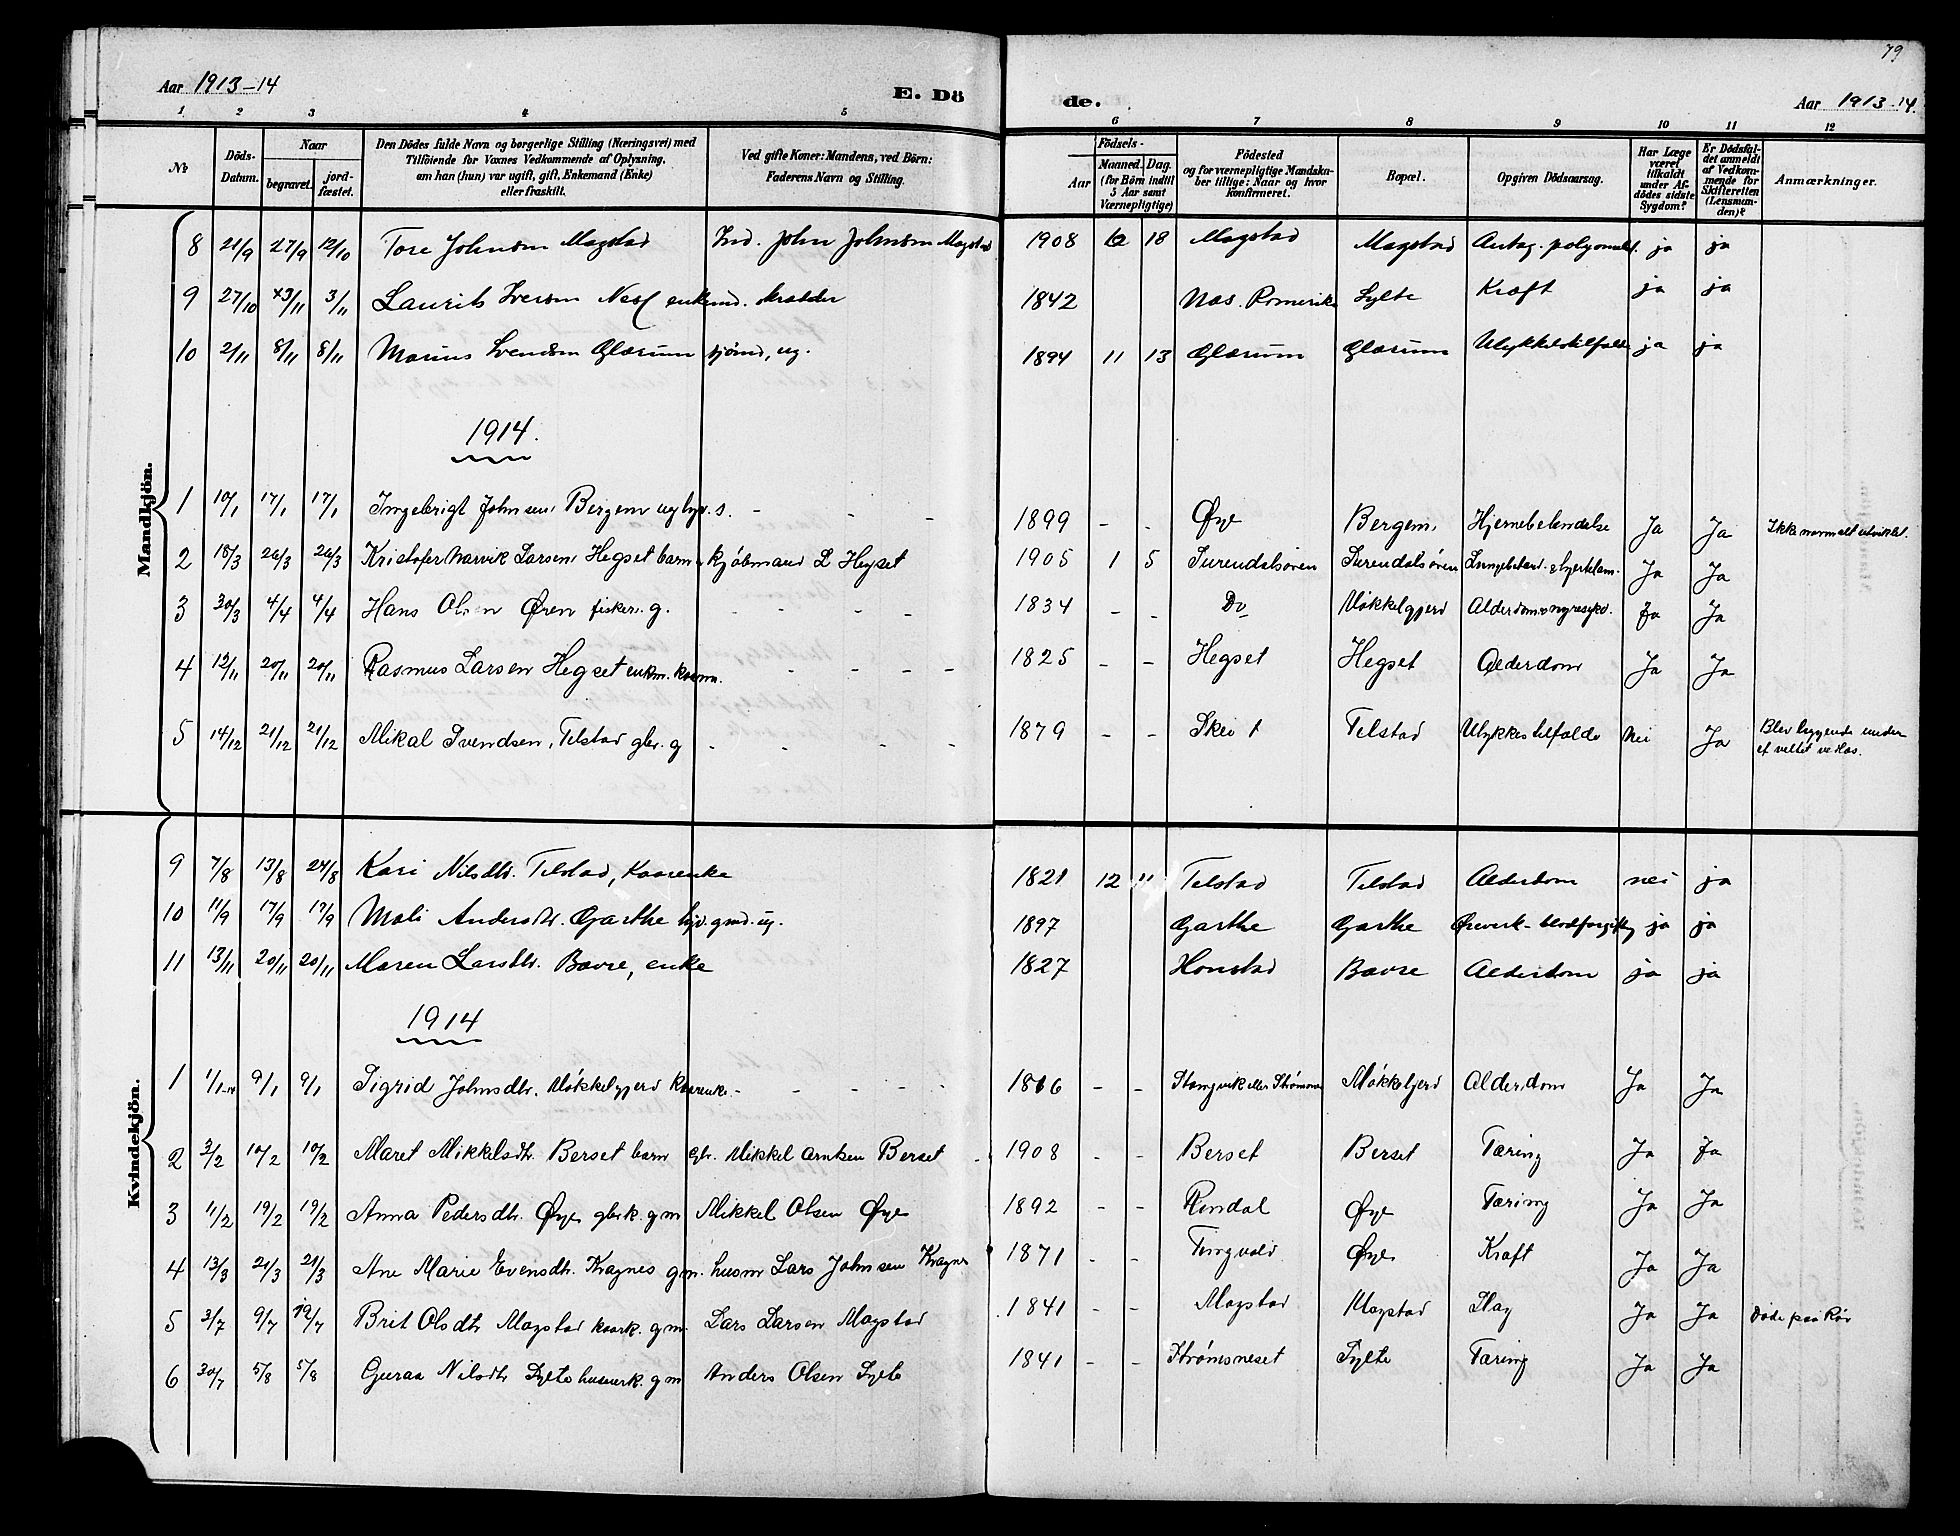 79
Aar 1913-14 E. Dö de. Aar 1913-14.
1 2 3 4 5 6 7 8 9 10 11 12
No Döds-Datum. Naar begravet. jord-fæstet. Den Dödes fulde Navn og borgerlige Stilling (Næringsvei) med Tilföiende for Voxnes Vedkommende af Oplysning, om han (hun) var ugift, gift, Enkemand (Enke) eller fraskilt. Ved gifte Koner: Mandens, ved Börn: Faderens Navn og Stilling. Födsels- Aar Maaned. Dag. (for Börn indtil 5 Aar samt Værnepligtige) Födested og for værnepligtige Mandskaber tillige: Naar og hvor konfirmeret. Bopæl. Opgiven Dödsaarsag. Har Læge været tilkaldt under Afdödes sidste Sygdom? Er Dödsfaldet anmeldt af Vedkommende for Skifteretten (Lensmanden)? Anmærkninger.
Mandkjön.
8 21/9 27/9 12/10 Tore Johnsen Magstad Ind. John Johnsen Magstad 1908 10 18 Magstad Magstad ja ja
9 27/10 3/11 3/11 Laurits Iversen enkemd. 1842 Nes. Romerike Sylte Kræft ja ja
10 2/11 8/11 8/11 Marius Svendsen Glærum sjömd, ug. 1894 11 13 Glærum Glærum Ulykkestilfælde ja ja
1914.
1 10/1 17/1 17/1 Ingebrigt Johnsen Bergem ug. s. - - - 1899 - - Øye Bergem Hjernebetendelse Ja Ja Ikke normalt utviklet.
2 18/3 26/3 26/3 Kristofer Narvik Larsen Hegset barn kjöbmand L Hegset 1905 1 5 Surendalsören Surendalsören Ja Ja
3 30/3 4/4 4/4 Hans Olsen Øren fisker. g. - - - - 1834 - - Do Møkkelgjerd Ja Ja
4 12/11 20/11 20/11 Rasmus Larsen Hegset enkm. - - - - 1825 - - Hegset Hegset Alderdom Ja Ja
5 14/12 21/12 21/12 Mikal Svendsen, Telstad gbr. g - - - - 1879 - - Skei Telstad Ulykkestilfælde Nei Ja Blev liggende under et veltet vedlas.
Kvindekjön.
9 7/8 13/8 24/8 Kari Nilsdtr. Telstad, Kaarenke 1821 12 11 Telstad Telstad Alderdom nei ja
10 11/9 17/9 17/9 Mali Andersdtr. Garthe ug. 1897 Garthe Garthe Øreverk - blodforgiftg ja ja
11 13/11 20/11 20/11 Maren Larsdtr. Bøvre, enke 1827 Honstad Bøvre Alderdom ja ja
1914
1 1/1-14 9/1 9/1 Sigrid Johnsdtr. Møkkelgjerd Kaarenke - - - - 1816 - - Stangvik eller Strømmen Møkkelgjerd Alderdom Ja Ja
2 3/2 10/2 10/2 Maret Mikkelsdtr. Berset barn gbr. Mikkel Arntsen Berset 1908 - - Berset Berset Tæring Ja Ja
3 11/2 19/2 19/2 Anna Pedersdtr. Øye gbrk. g m Mikkel Olsen Øye 1892 - - Rindal Øye Tæring Ja Ja
4 13/3 21/3 21/3 Ane Marie Evensdtr. Kragnes g m. husm Lars Johnsen Kragnes 1871 - - Tingvold Øye Kræft Ja Ja
5 3/7 9/7 19/7 Brit Olsdtr Magstad kaark. g m. Lars Larsen Magstad 1841 - - Magstad Magstad Slag Ja Ja Døde paa Rör
6 30/7 5/8 5/8 Guraa Nilsdtr Sylte husmk. g m Anders Olsen Sylte 1841 - - Strømsneset Sylte Tæring Ja Ja